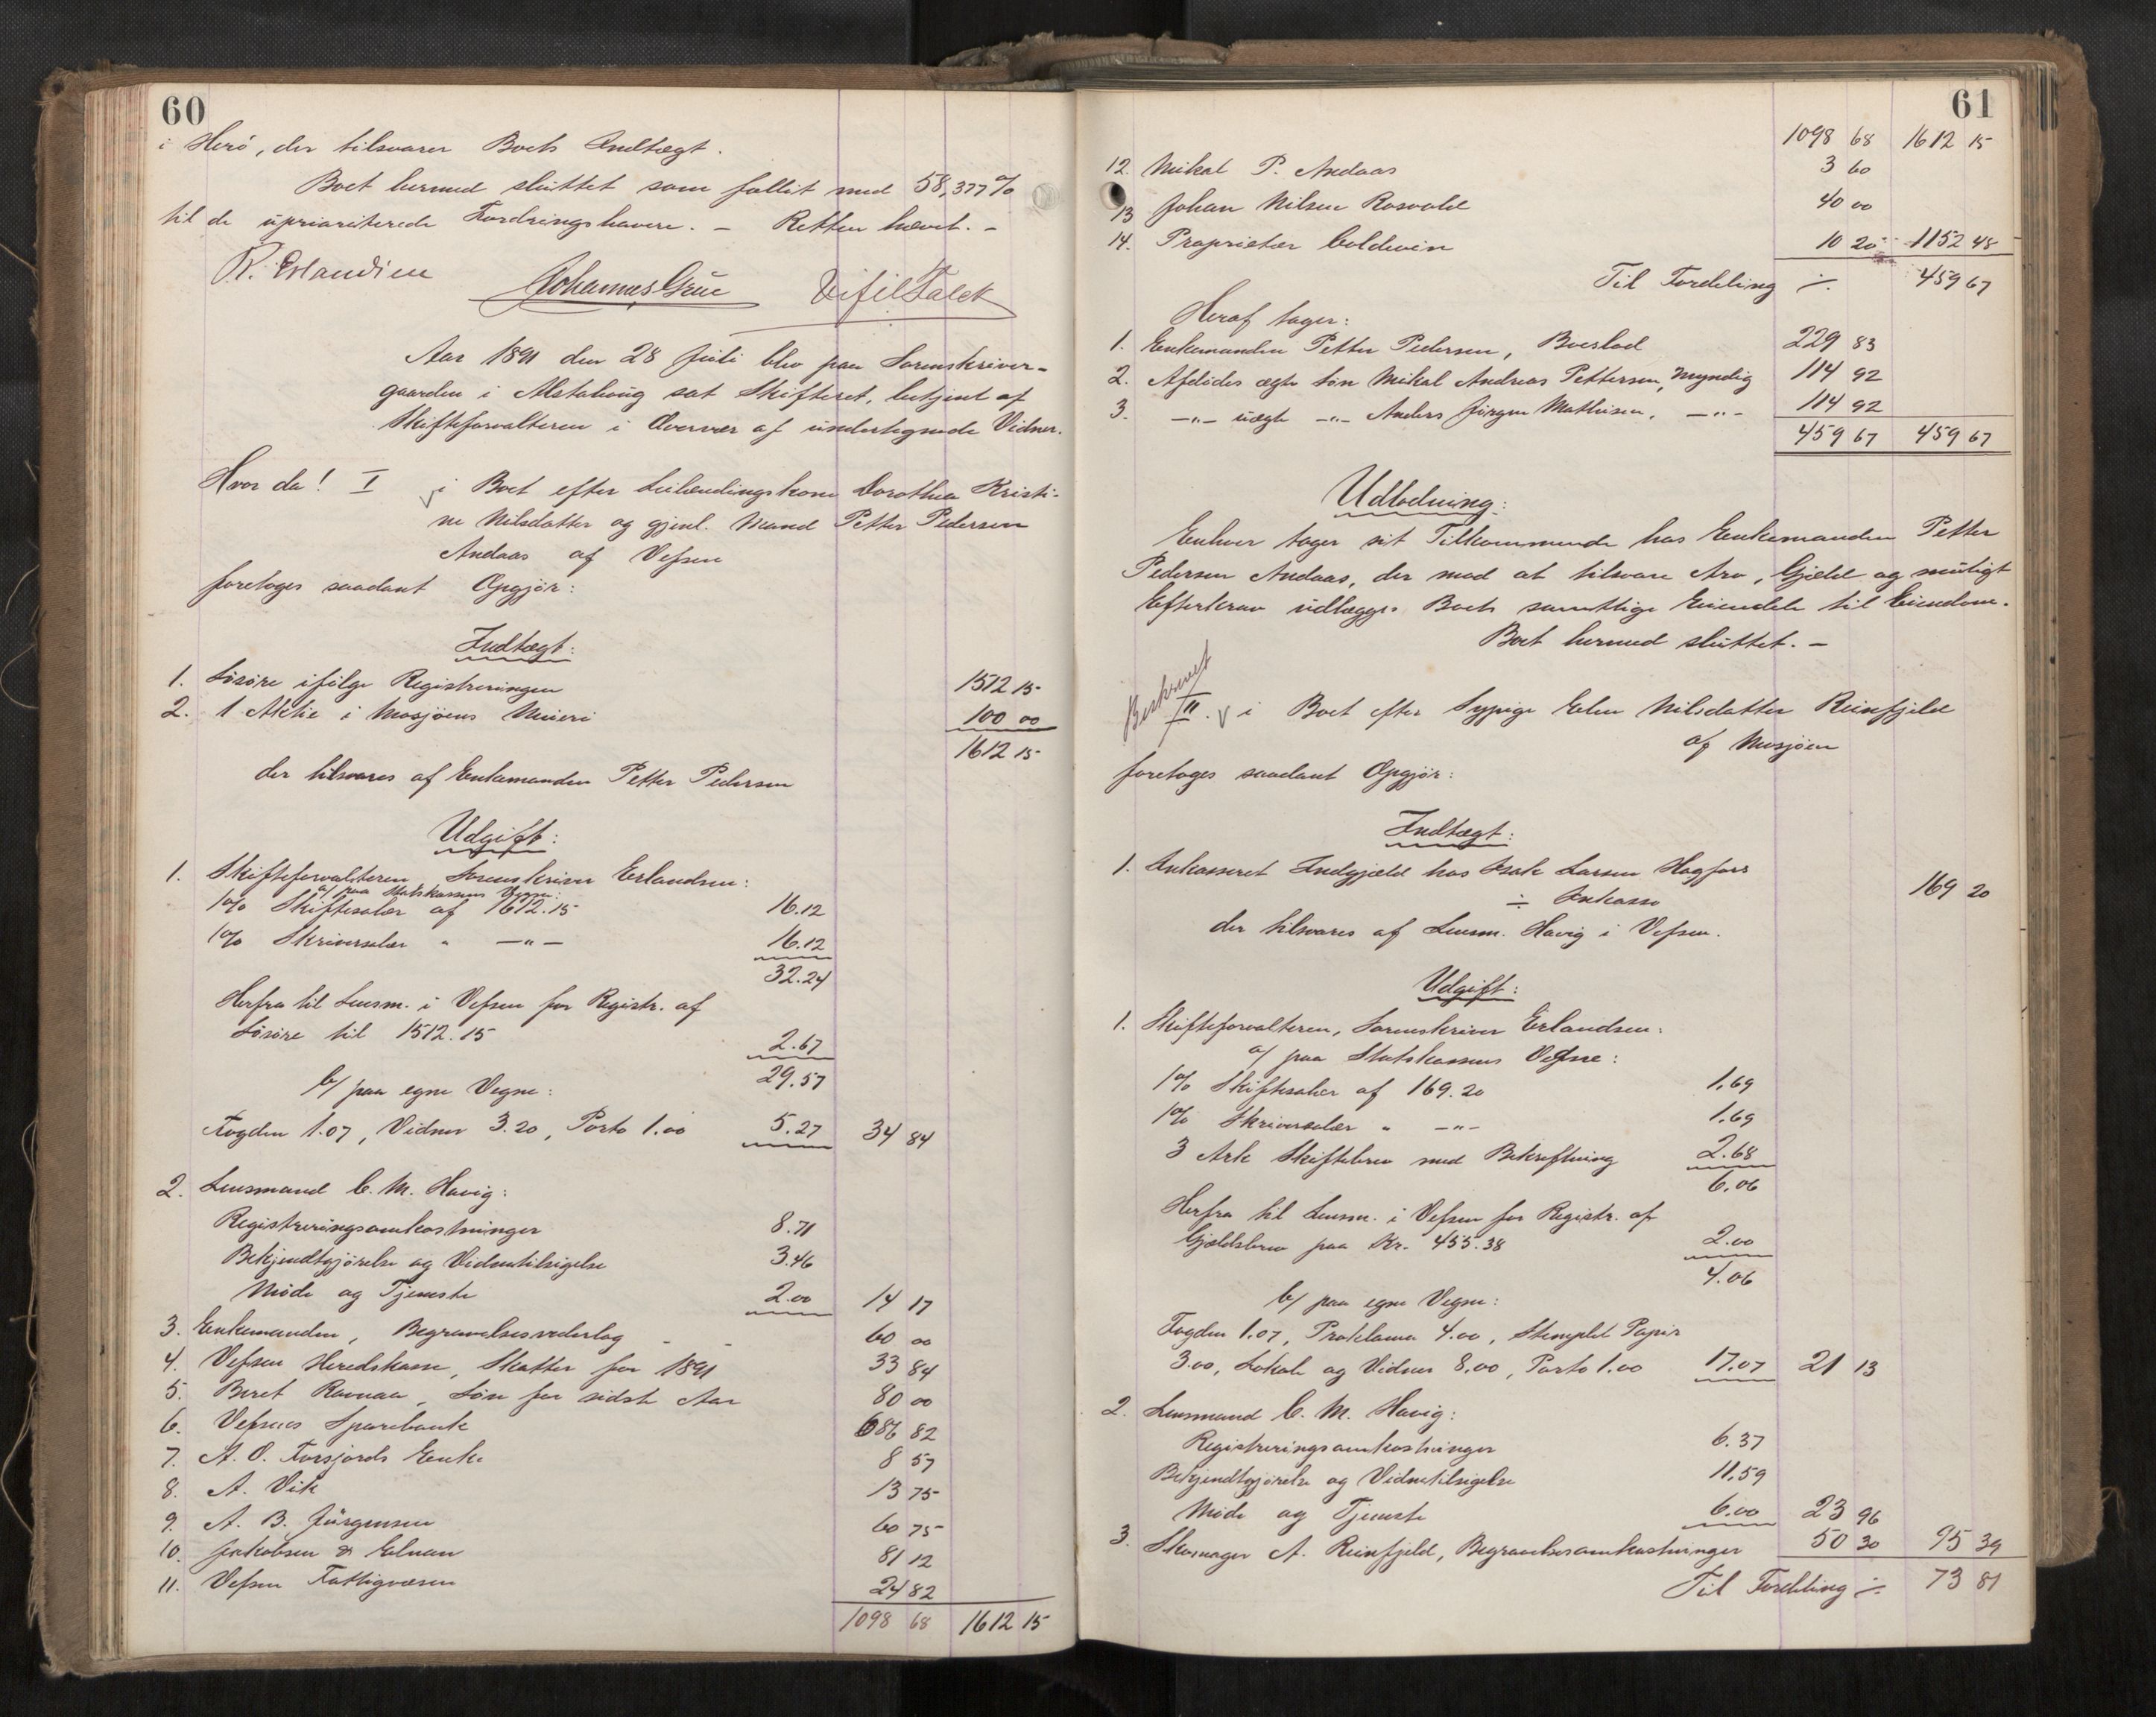 60
i Herö, der tilsvarer Boets Indtægt.
Boet hermed sluttet som fallit med 58,377 %
til de upriariterede Fordringshavere. – Retten hævet. –
R. Erlandsen Johannes Grue Eifil Falck
Aar 1891 den 28 Juli blev paa Sorenskriver-
gaarden i Alstahoug sat Skifteret, betjent af
Skifteforvalteren i Overvær af undertegnede Vidner.
Hvor da! I i Boet efter Leilændingskone Dorothea Kristi-
ne Nilsdatter og gjenl. Mand Petter Pedersen
Andaas af Vefsen
foretoges saadant Opgjör:
Indtægt:
1. Lösöre ifölge Registreringen 1512 15
2. 1 Aktie i Mosjöens Meieri 100 00
1612 15
der tilsvares af Enkemanden Petter Pedersen
Udgift:
1. Skifteforvalteren, Sorenskriver Erlandsen:
a/ paa Statskassens Vegne:
1% Skiftesalær af 1612.15 16.12
1% Skriversalær " —"— 16.12
32.24
Herfra til Lensm. i Vefsen for Registr. af
Lösöre til 1512.15 2.67
29.57
b/ paa egne Vegne:
Fogden 1.07, Vidner 3.20, Porto 1.00 5.27 34 84
2. Lensmand C. M. Havig:
Registreringsomkostninger 8.71
Bekjendtgjörelse og Vidnetilsigelse 3.46
Möde og Tjeneste 2.00 14 17
3. Enkemanden, Begravelsesvederlag 60 00
4. Vefsen Heredskasse, Skatter for 1891 33 84
5. Beret Ravnaa, Lön for sidste Aar 80 00
6. Vefsens Sparebank 686 82
7. A. O. Forsjords Enke 8 57
8. A. Vik 13 75
9. A. B. Jürgensen 60 75
10. Jakobsen & Elnan 81 12
11. Vefsen Fattigvæsen 24 82
1098 68 1612 15
61
1098 68 1612 15
12. Mikal P. Andaas 3 60
13 Johan Nilsen Rosvold 40 00
14. Proprietær Coldevin 10 20 1152 48
Til Fordeling ÷ 459 67
Heraf tager:
1. Enkemanden Petter Pedersen, Boeslod 229 83
2. Afdödes ægte Sön Mikal Andreas Pettersen, Myndig 114 92
3. —"— uægte —"— Anders Jörgen Mathisen, —"— 114 92
459 67 459 67
Udlodning:
Enhver tager sit Tilkommende hos Enkemanden Petter
Pedersen Andaas, der mod at tilsvare Arv, Gjæld og muligt
Efterkrav udlægges Boets samtlige Eiendele til Eiendom.
Boet hermed sluttet. –
Beskrevet
II. i Boet efter Sypige Elen Nilsdatter Reinfjeld
af Mosjöen
foretoges saadant Opgjör:
Indtægt:
1. Inkasseret Indgjæld hos Isak Larsen Hagfors
÷ Inkasso 169 20
der tilsvares af Lensm. Havig i Vefsen.
Udgift:
1. Skifteforvalteren, Sorenskriver Erlandsen:
a/ paa Statskassens Vegne:
1% Skiftesalær af 169.20 1.69
1% Skriversalær " —"— 1.69
3 Ark Skiftebrev med Bekreftning 2.68
6.06
Herfra til Lensm. i Vefsen for Registr. af
Gjældsbrev paa Kr. 455.38 2.00
4.06
b/ paa egne Vegne:
Fogden 1.07, Proklama 4.00, Stemplet Papir
3.00, Lokale og Vidner 8.00, Porto 1.00 17.07 21 13
2. Lensmand C. M. Havig:
Registreringsomkostninger 6.37
Bekjendtgjörelse og Vidnetilsigelse 11.59
Möde og Tjeneste 6.00 23 96
3. Skomager A. Reinfjeld, Begravelsesomkostninger 50 30 95 39
Til Fordeling ÷ 73 81